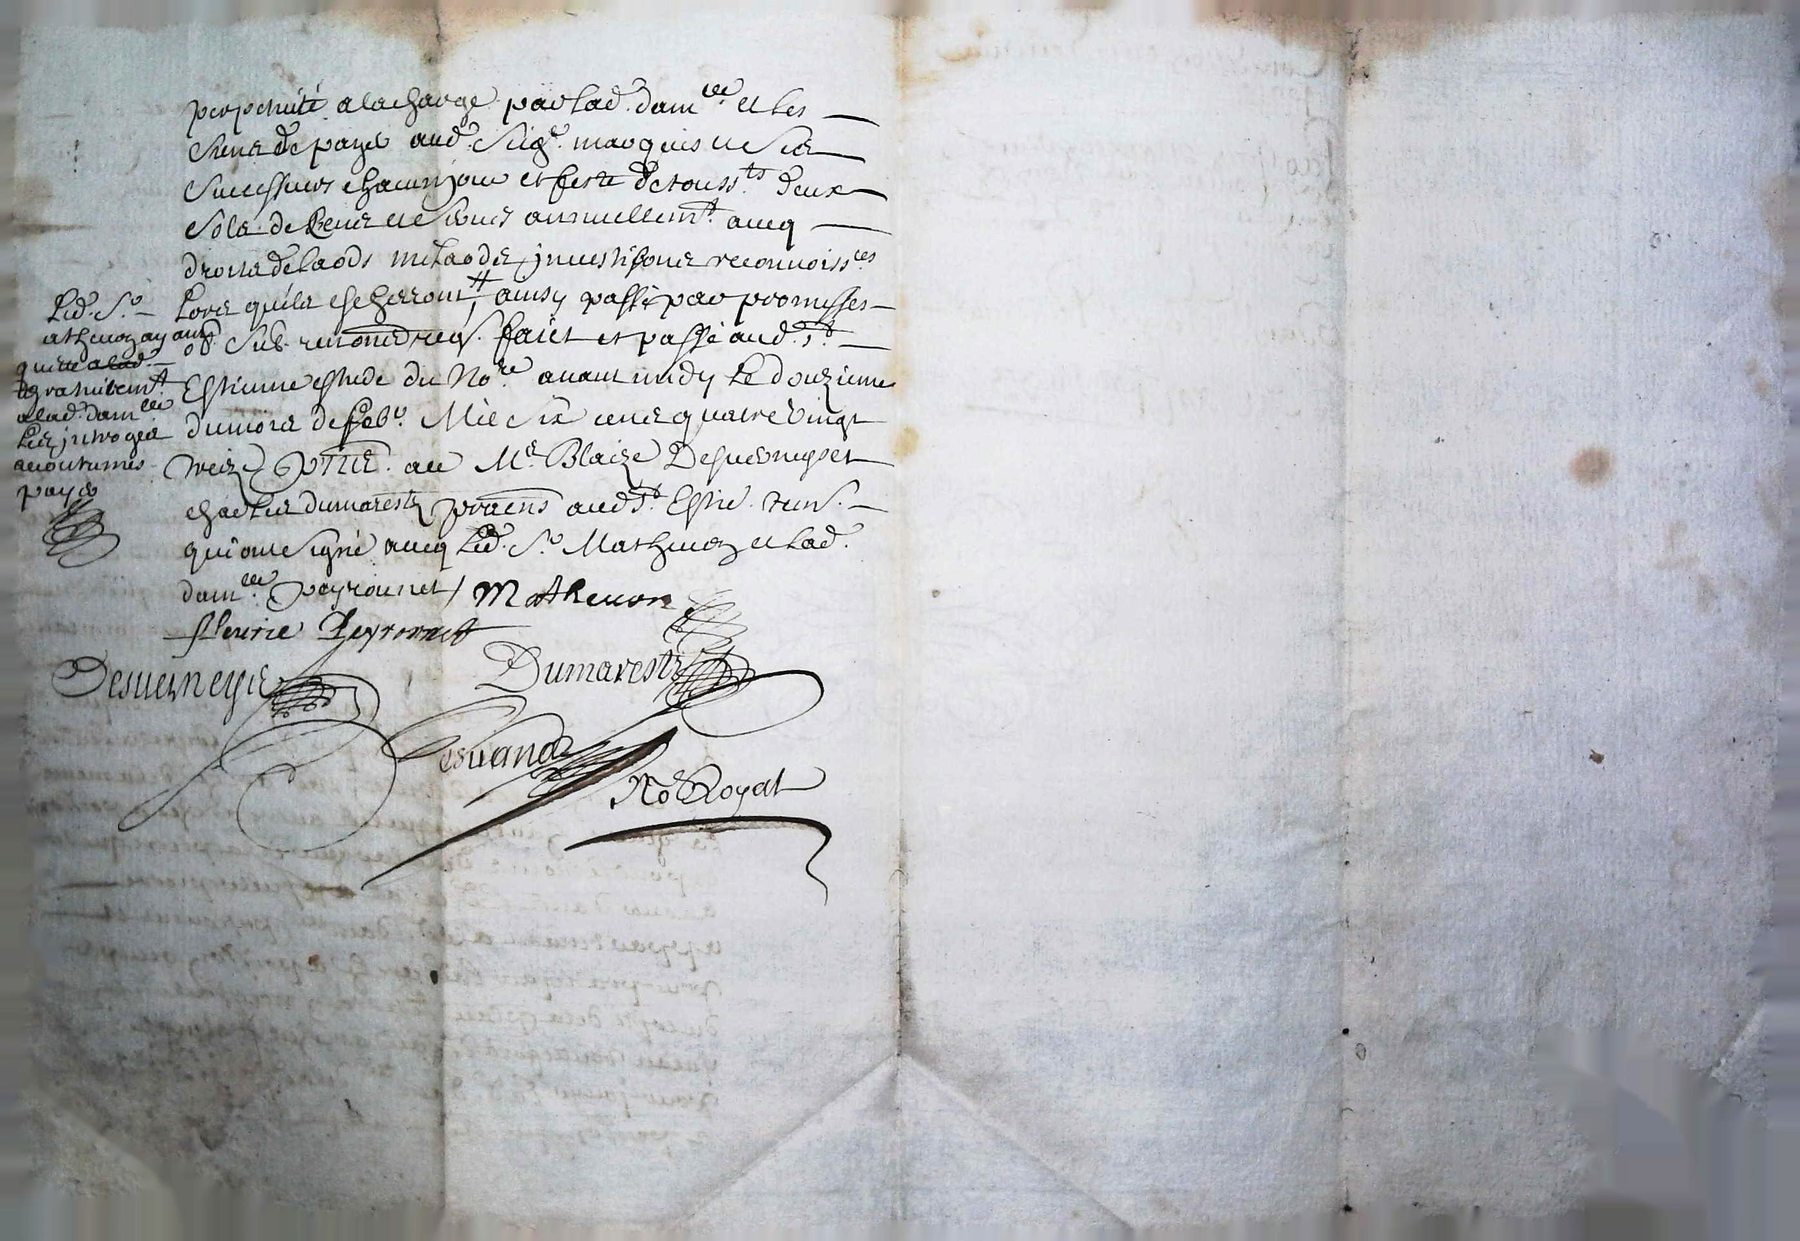 perpetuité a la charge par lad. dam.lle et les
siens de payer aud. Seigr. marquis et ses
successeurs chacun jour et feste de touss.ts deux
sols de cens et servis annuellem.t avecq
droits de laods milaods, investisons reconnoiss.ces
lors quils escherront, # ainsy passé par promesses
ob. sub. renon. et faict et passé aud. St.
Estienne estude du No.re avant midy le douzieme
du mois de feb.r Mil six cens quatre vingt
treize au Me. Blaize Desverneys et
charles dumarestz aud. St. Estie.
qui ont signé avecq led. Sr. Mathevon et lad.
dam.lle Peyronnet /
Led. Sr.
Mathevon ayant
quitté a lad.
gratuitem.t
a lad. dam.lle
les introges
accoutumés
payer
Mathevon
fleurie Peyronnet
Desverneys
Dumarestz
No.re Royal